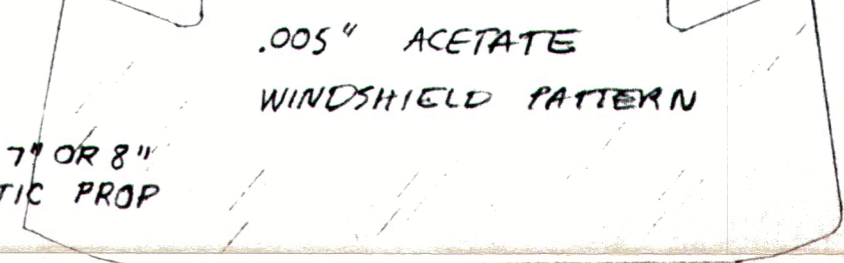 .005" ACETATE
WINDSHIELD PATTERN
7" OR 8"
TIC PROP